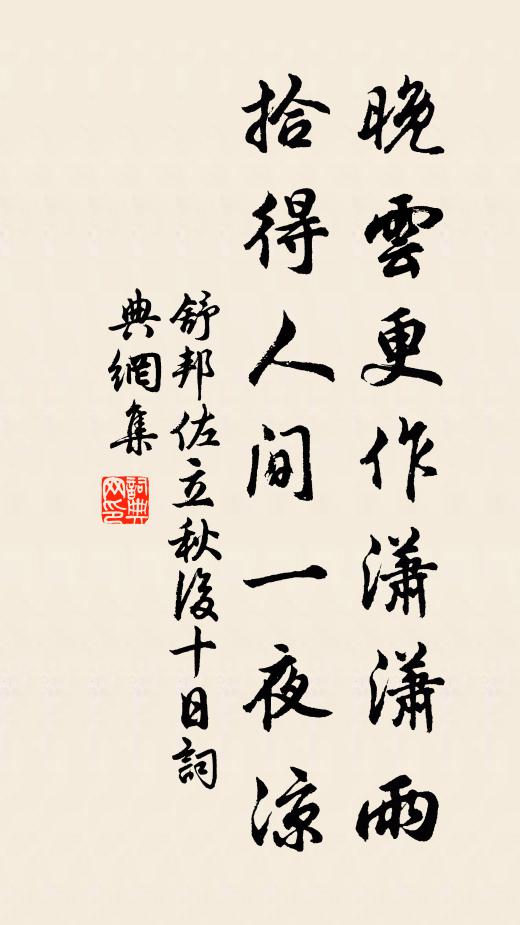 晚雲更作瀟瀟雨
拾得人間一夜涼
舒邦佐立秋後十日詞
典網集
詞典網印